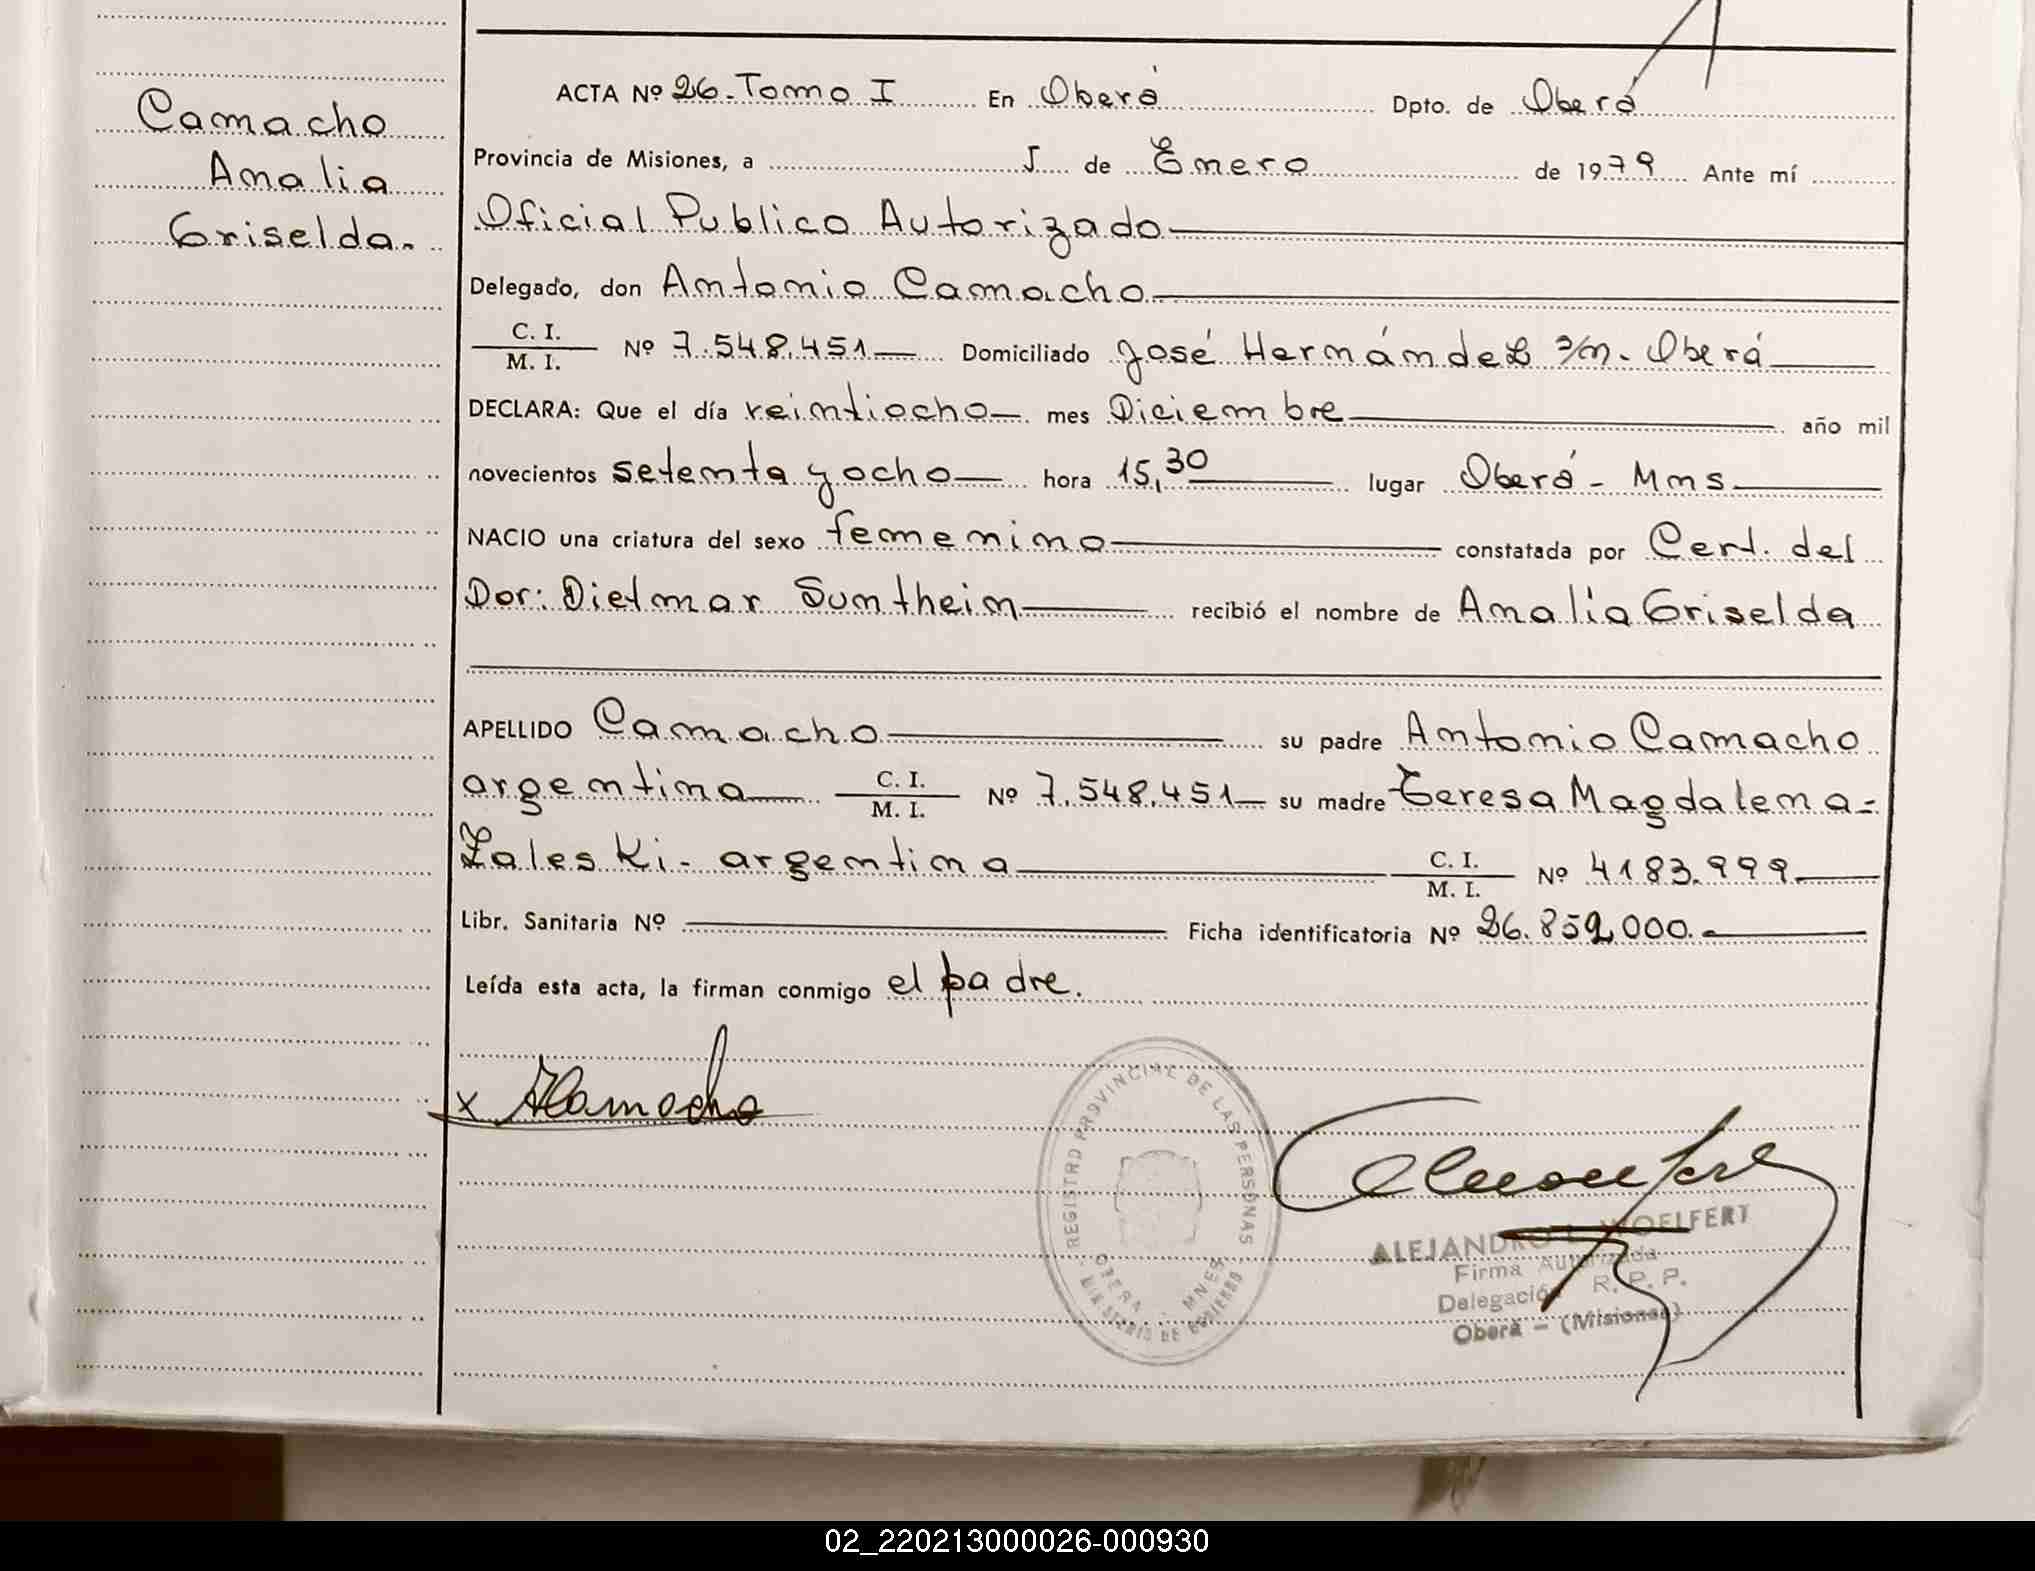 Camacho
Amalia
Griselda.
ACTA Nº 26. Tomo I En Oberá Dpto. de Oberá
Provincia de Misiones, a 5 de Enero de 1979 Ante mí
Oficial Publico Autorizado
Delegado, don Antonio Camacho
C. I.
M. I. Nº 7.548.451 Domiciliado José Hernández s/n. Oberá
DECLARA: Que el día veintiocho mes Diciembre año mil
novecientos setenta y ocho hora 15,30 lugar Oberá - Mnes
NACIO una criatura del sexo femenino constatada por Cert. del
Dor: Dietmar Suntheim recibió el nombre de Amalia Griselda
APELLIDO Camacho su padre Antonio Camacho
argentina C. I. M. I. Nº 7.548.451 su madre Teresa Magdalena-
Zaleski - argentina C. I. M. I. Nº 4183.999
Libr. Sanitaria Nº Ficha identificatoria Nº 26.852,000.
Leída esta acta, la firman conmigo el padre.
x ACamacho
REGISTRO PROVINCIAL DE LAS PERSONAS
OBERA - MNES
MINISTERIO DE GOBIERNO
ALEJANDRO L. WOELFERT
Firma Autorizada
Delegación R. P. P.
Oberá - (Misiones)
02_220213000026-000930